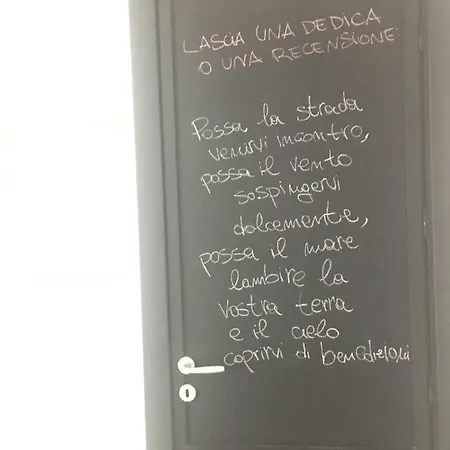 LASCIA UNA DEDICA
O UNA RECENSIONE:
Possa la strada
venirvi incontro,
possa il vento
sospingervi
dolcemente,
possa il mare
lambire la
vostra terra
e il cielo
coprirvi di benedizioni